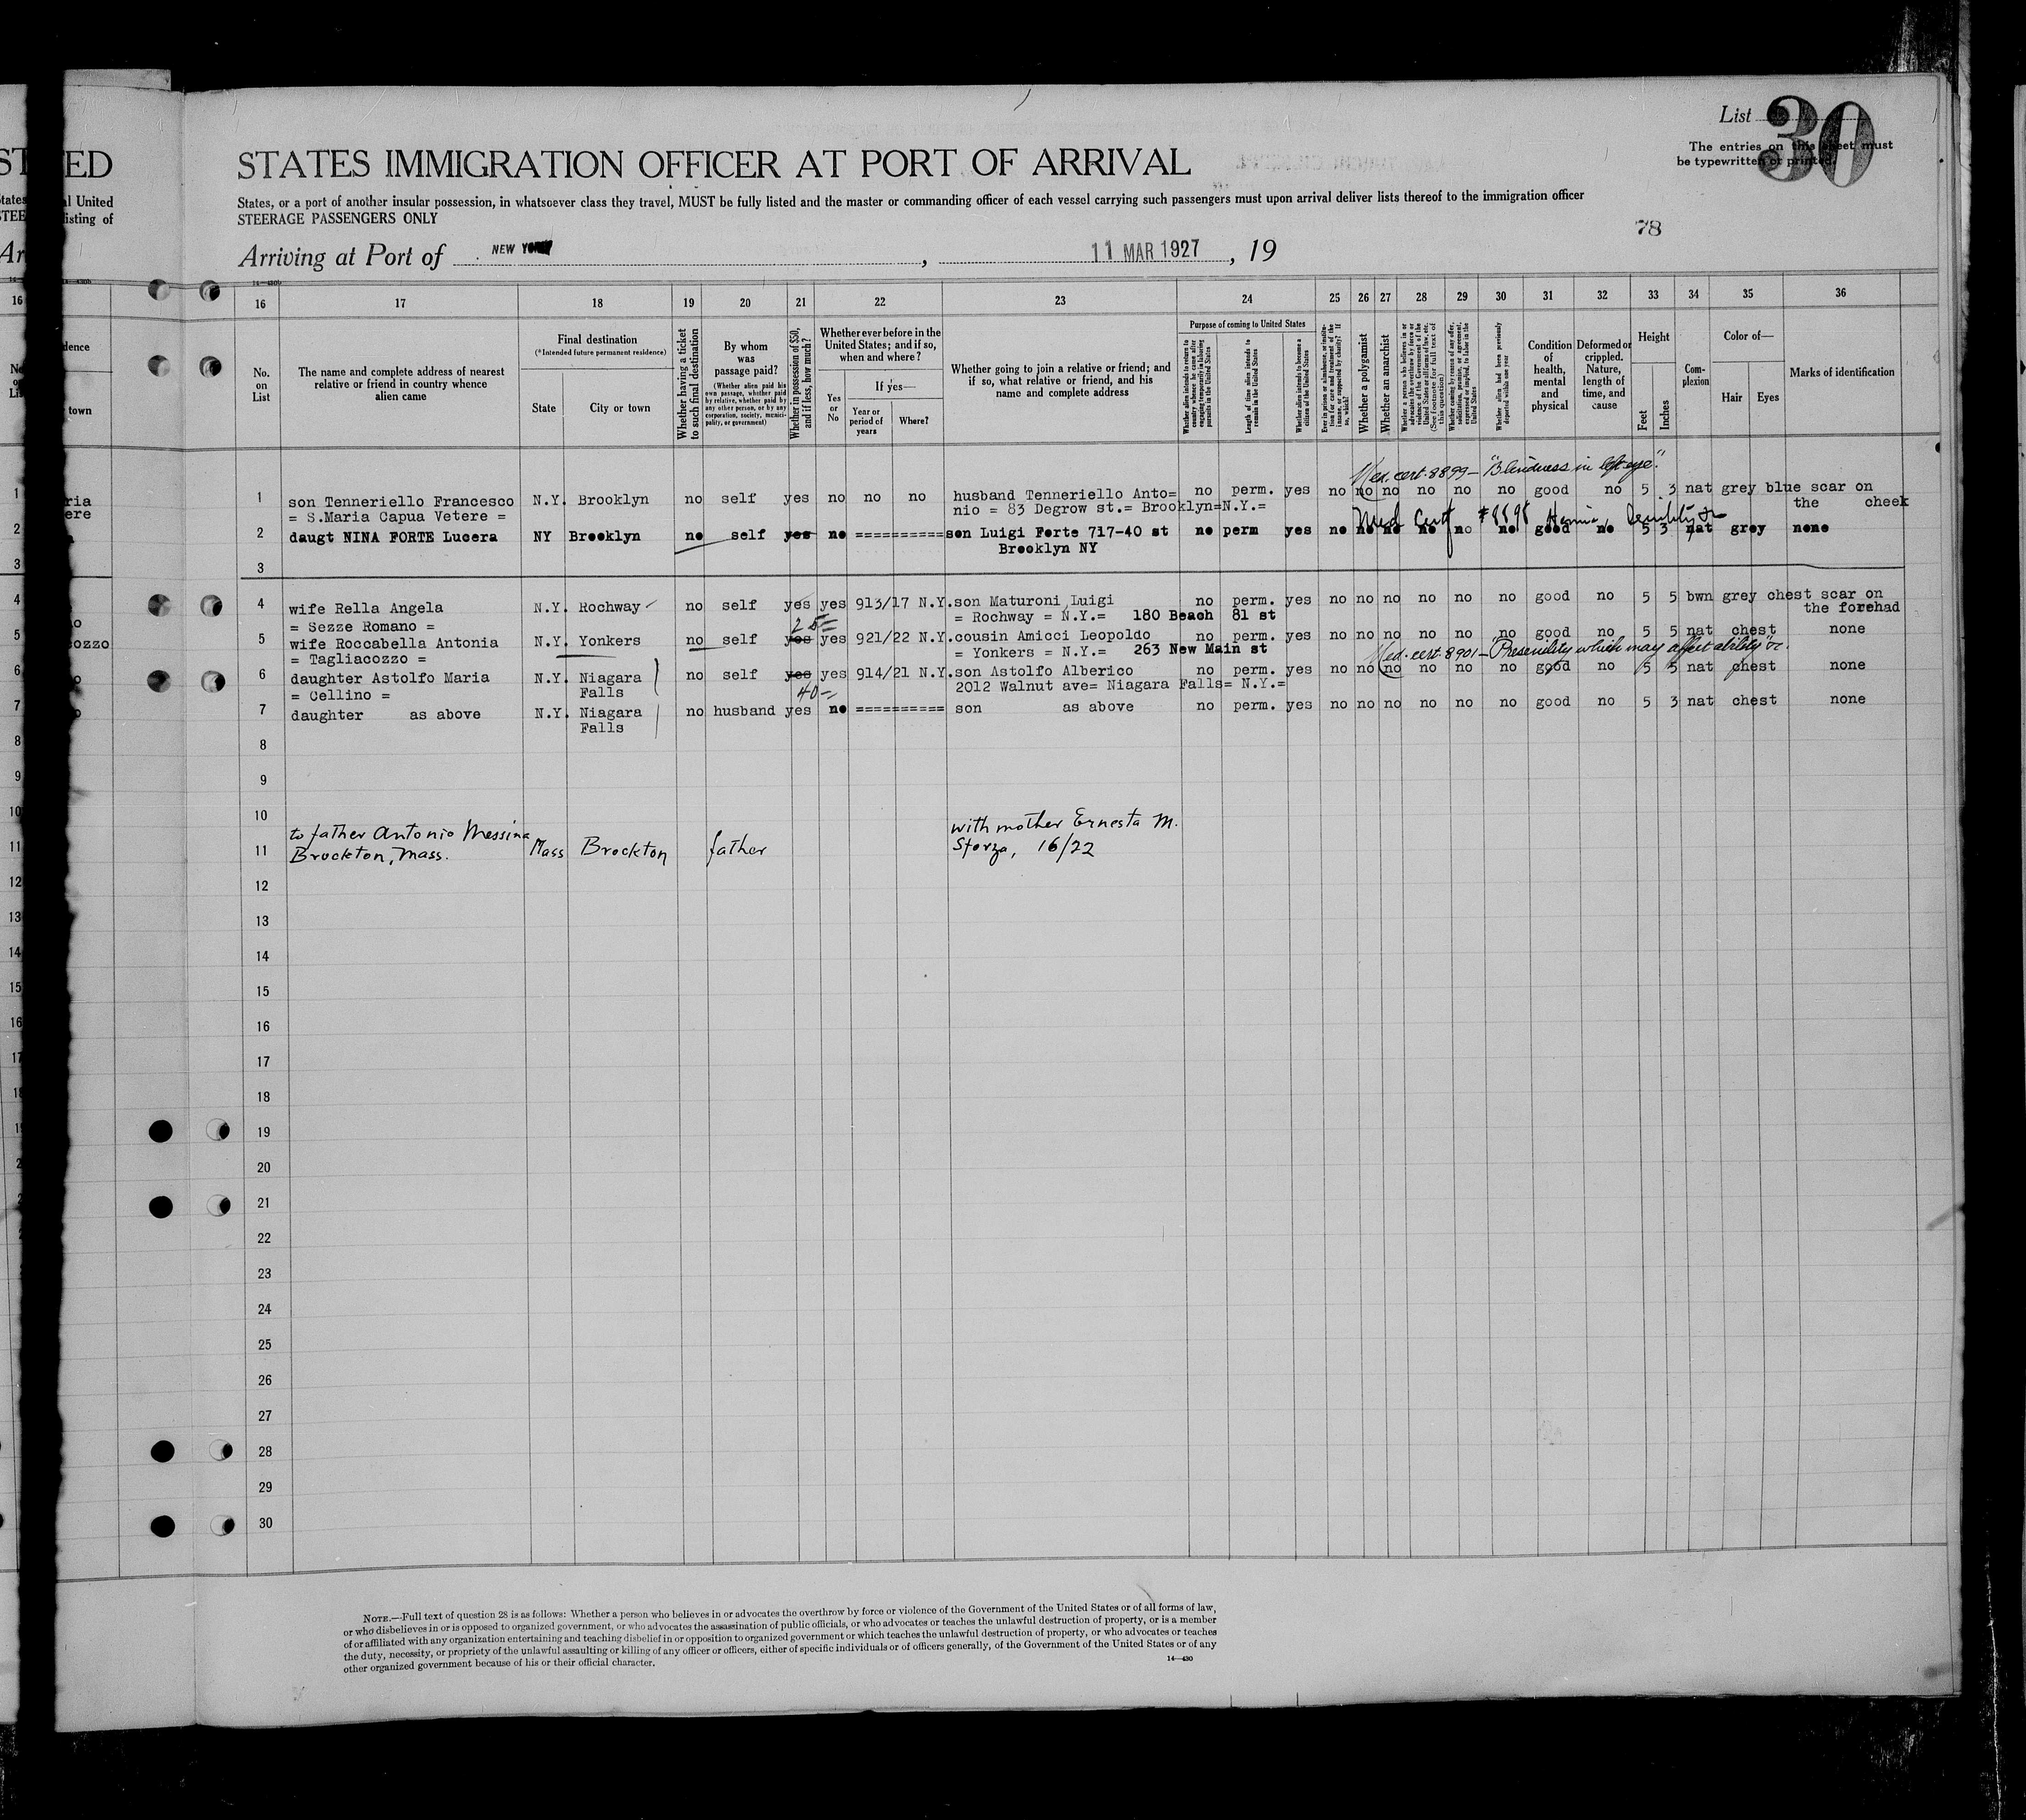 List 30
The entries on this sheet must
be typewritten or printed.
STATES IMMIGRATION OFFICER AT PORT OF ARRIVAL
States, or a port of another insular possession, in whatsoever class they travel, MUST be fully listed and the master or commanding officer of each vessel carrying such passengers must upon arrival deliver lists thereof to the immigration officer
STEERAGE PASSENGERS ONLY
78
Arriving at Port of NEW YORK, 11 MAR 1927, 19
16 17 18 19 20 21 22 23 24 25 26 27 28 29 30 31 32 33 34 35 36
No. on List
The name and complete address of nearest relative or friend in country whence alien came
Final destination
(*Intended future permanent residence)
State
City or town
Whether having a ticket to such final destination
By whom was passage paid?
(Whether alien paid his own passage, whether paid by relative, whether paid by any other person, or by any corporation, society, municipality, or government)
Whether in possession of $50, and if less, how much?
Whether ever before in the United States; and if so, when and where?
Yes or No
If yes—
Year or period of years
Where?
Whether going to join a relative or friend; and if so, what relative or friend, and his name and complete address
Purpose of coming to United States
Whether alien intends to return to country whence he came after engaging temporarily in laboring pursuits in the United States
Length of time alien intends to remain in the United States
Whether alien intends to become a citizen of the United States
Ever in prison or almshouse, or institution for care and treatment of the insane, or supported by charity? If so, which?
Whether a polygamist
Whether an anarchist
(See footnote for full text of this question)
Whether coming by reason of any offer, solicitation, promise, or agreement, expressed or implied, to labor in the United States
Whether alien had been previously deported within one year
Condition of health, mental and physical
Deformed or crippled. Nature, length of time, and cause
Height
Feet
Inches
Complexion
Color of—
Hair
Eyes
Marks of identification
Med. cert. 8899 — "Blindness in left eye".
1 son Tenneriello Francesco N.Y. Brooklyn no self yes no no no husband Tenneriello Anto= no perm. yes no no no no no no good no 5 3 nat grey blue scar on
= S.Maria Capua Vetere = nio = 83 Degrow st.= Brooklyn=N.Y.= the cheek
Med Cert #8898 Hernia, Senility &
2 daugt NINA FORTE Lucera NY Brooklyn no self yes no ========== son Luigi Forte 717-40 st no perm yes no no no no no no good no 5 3 nat grey none
Brooklyn NY
3
4 wife Rella Angela N.Y. Rochway no self yes yes 913/17 N.Y. son Maturoni Luigi no perm. yes no no no no no no good no 5 5 bwn grey chest scar on
= Sezze Romano = = Rochway = N.Y.= 180 Beach 81 st the forehad
25=
5 wife Roccabella Antonia N.Y. Yonkers no self yes yes 921/22 N.Y. cousin Amicci Leopoldo no perm. yes no no no no no no good no 5 5 nat chest none
= Tagliacozzo = = Yonkers = N.Y.= 263 New Main st
Med. cert. 8901 — "Presenility which may affect ability" &c.
6 daughter Astolfo Maria N.Y. Niagara no self yes yes 914/21 N.Y. son Astolfo Alberico no perm. yes no no no no no no good no 5 5 nat chest none
= Cellino = Falls 40- 2012 Walnut ave= Niagara Falls= N.Y.=
7 daughter as above N.Y. Niagara no husband yes no ========== son as above no perm. yes no no no no no no good no 5 3 nat chest none
Falls
8
9
10
to father Antonio Messina with mother Ernesta M.
11 Brockton, Mass. Mass Brockton father Sforza, 16/22
12
13
14
15
16
17
18
19
20
21
22
23
24
25
26
27
28
29
30
NOTE.—Full text of question 28 is as follows: Whether a person who believes in or advocates the overthrow by force or violence of the Government of the United States or of all forms of law,
or who disbelieves in or is opposed to organized government, or who advocates the assassination of public officials, or who advocates or teaches the unlawful destruction of property, or is a member
of or affiliated with any organization entertaining and teaching disbelief in or opposition to organized government or which teaches the unlawful destruction of property, or who advocates or teaches
the duty, necessity, or propriety of the unlawful assaulting or killing of any officer or officers, either of specific individuals or of officers generally, of the Government of the United States or of any
other organized government because of his or their official character.
14—430